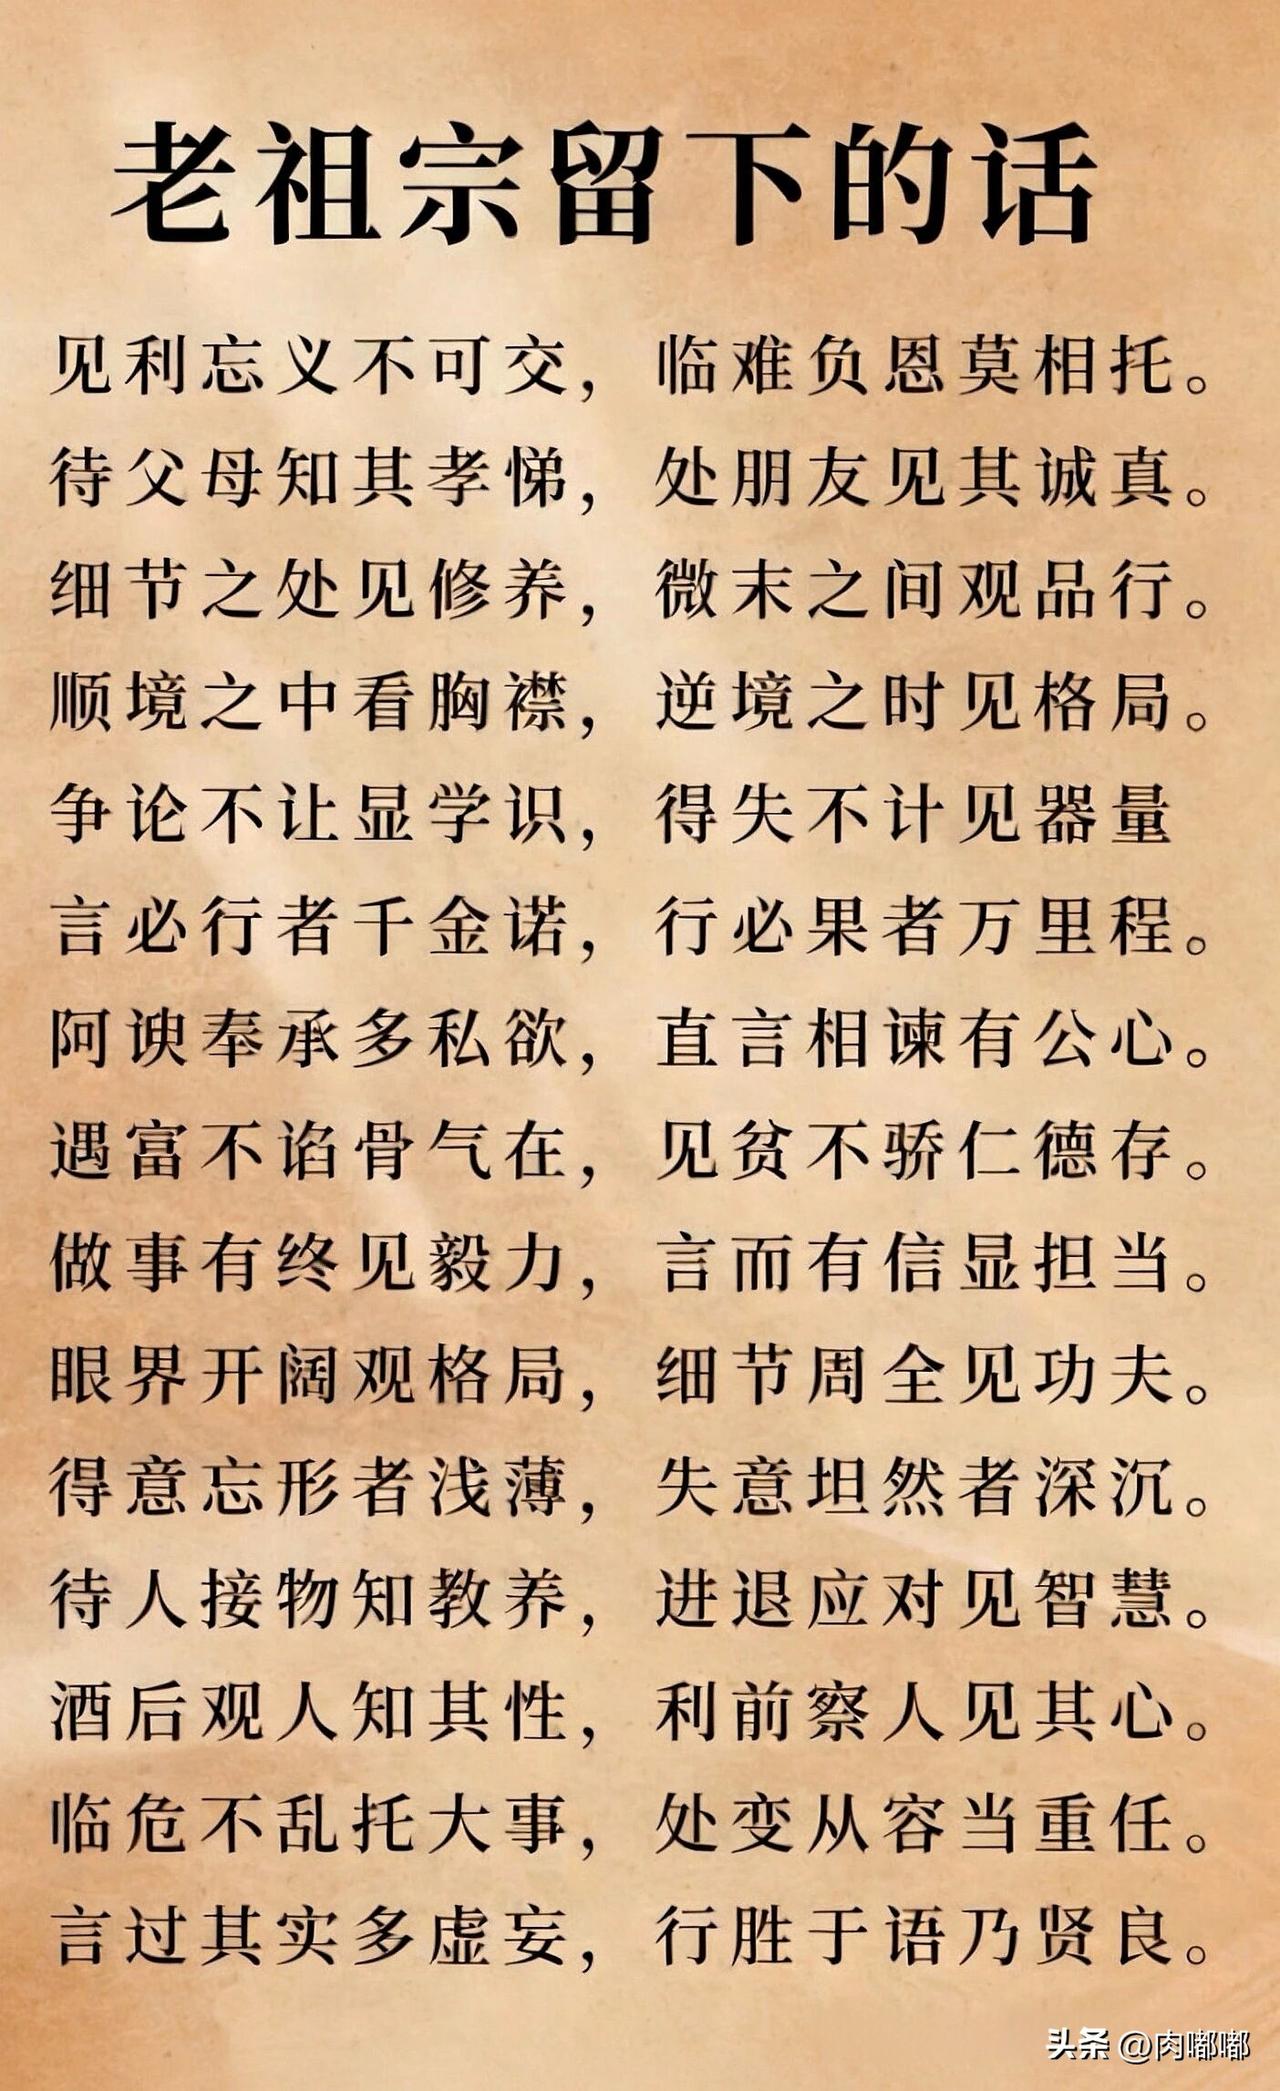 老祖宗留下的话
见利忘义不可交，临难负恩莫相托。
待父母知其孝悌，处朋友见其诚真。
细节之处见修养，微末之间观品行。
顺境之中看胸襟，逆境之时见格局。
争论不让显学识，得失不计见器量
言必行者千金诺，行必果者万里程。
阿谀奉承多私欲，直言相谏有公心。
遇富不谄骨气在，见贫不骄仁德存。
做事有终见毅力，言而有信显担当。
眼界开阔观格局，细节周全见功夫。
得意忘形者浅薄，失意坦然者深沉。
待人接物知教养，进退应对见智慧。
酒后观人知其性，利前察人见其心。
临危不乱托大事，处变从容当重任。
言过其实多虚妄，行胜于语乃贤良。
头条 @肉嘟嘟